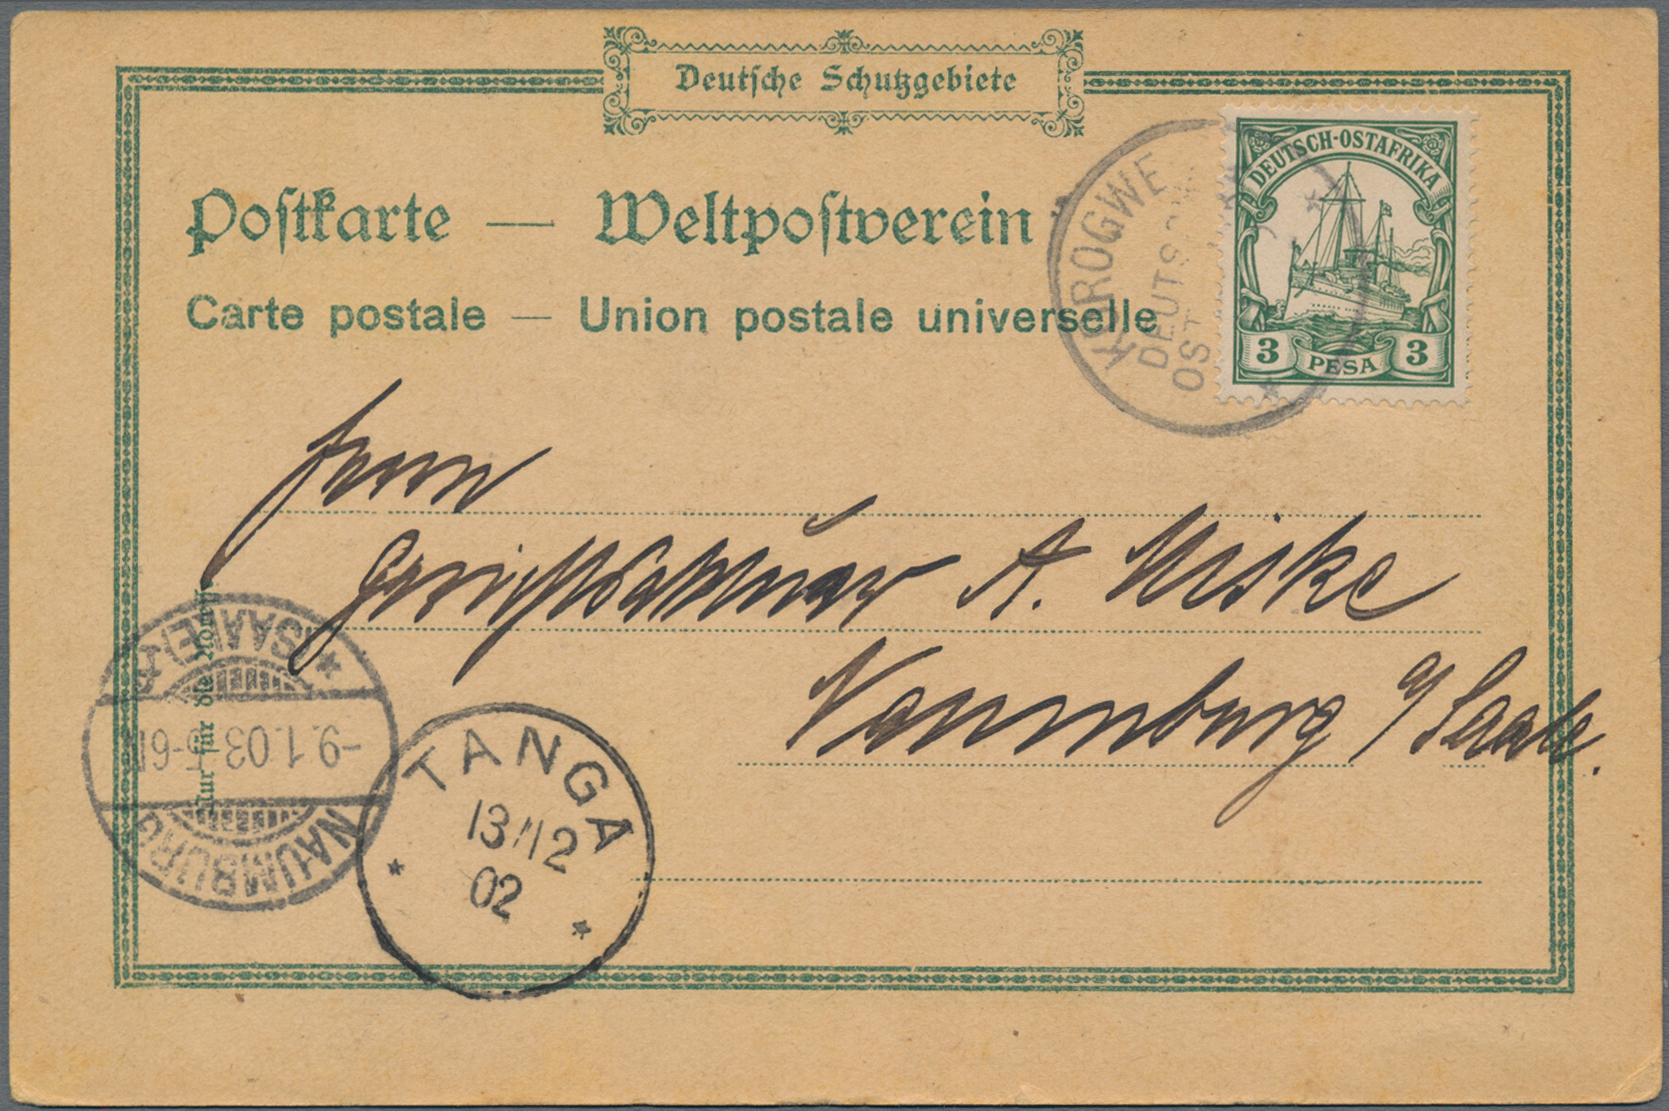 Deutsche Schutzgebiete
Postkarte — Weltpostverein
Carte postale — Union postale universelle
KOROGWE
DEUTSCH
OST
DEUTSCH-OSTAFRIKA
3 PESA 3
Herrn
Gerichtsaktuar A. Miske
Naumburg a/Saale.
Nur für die Adresse
NAUMBURG
-9.1.03 5-6N
(SAALE)
TANGA
13/12
02